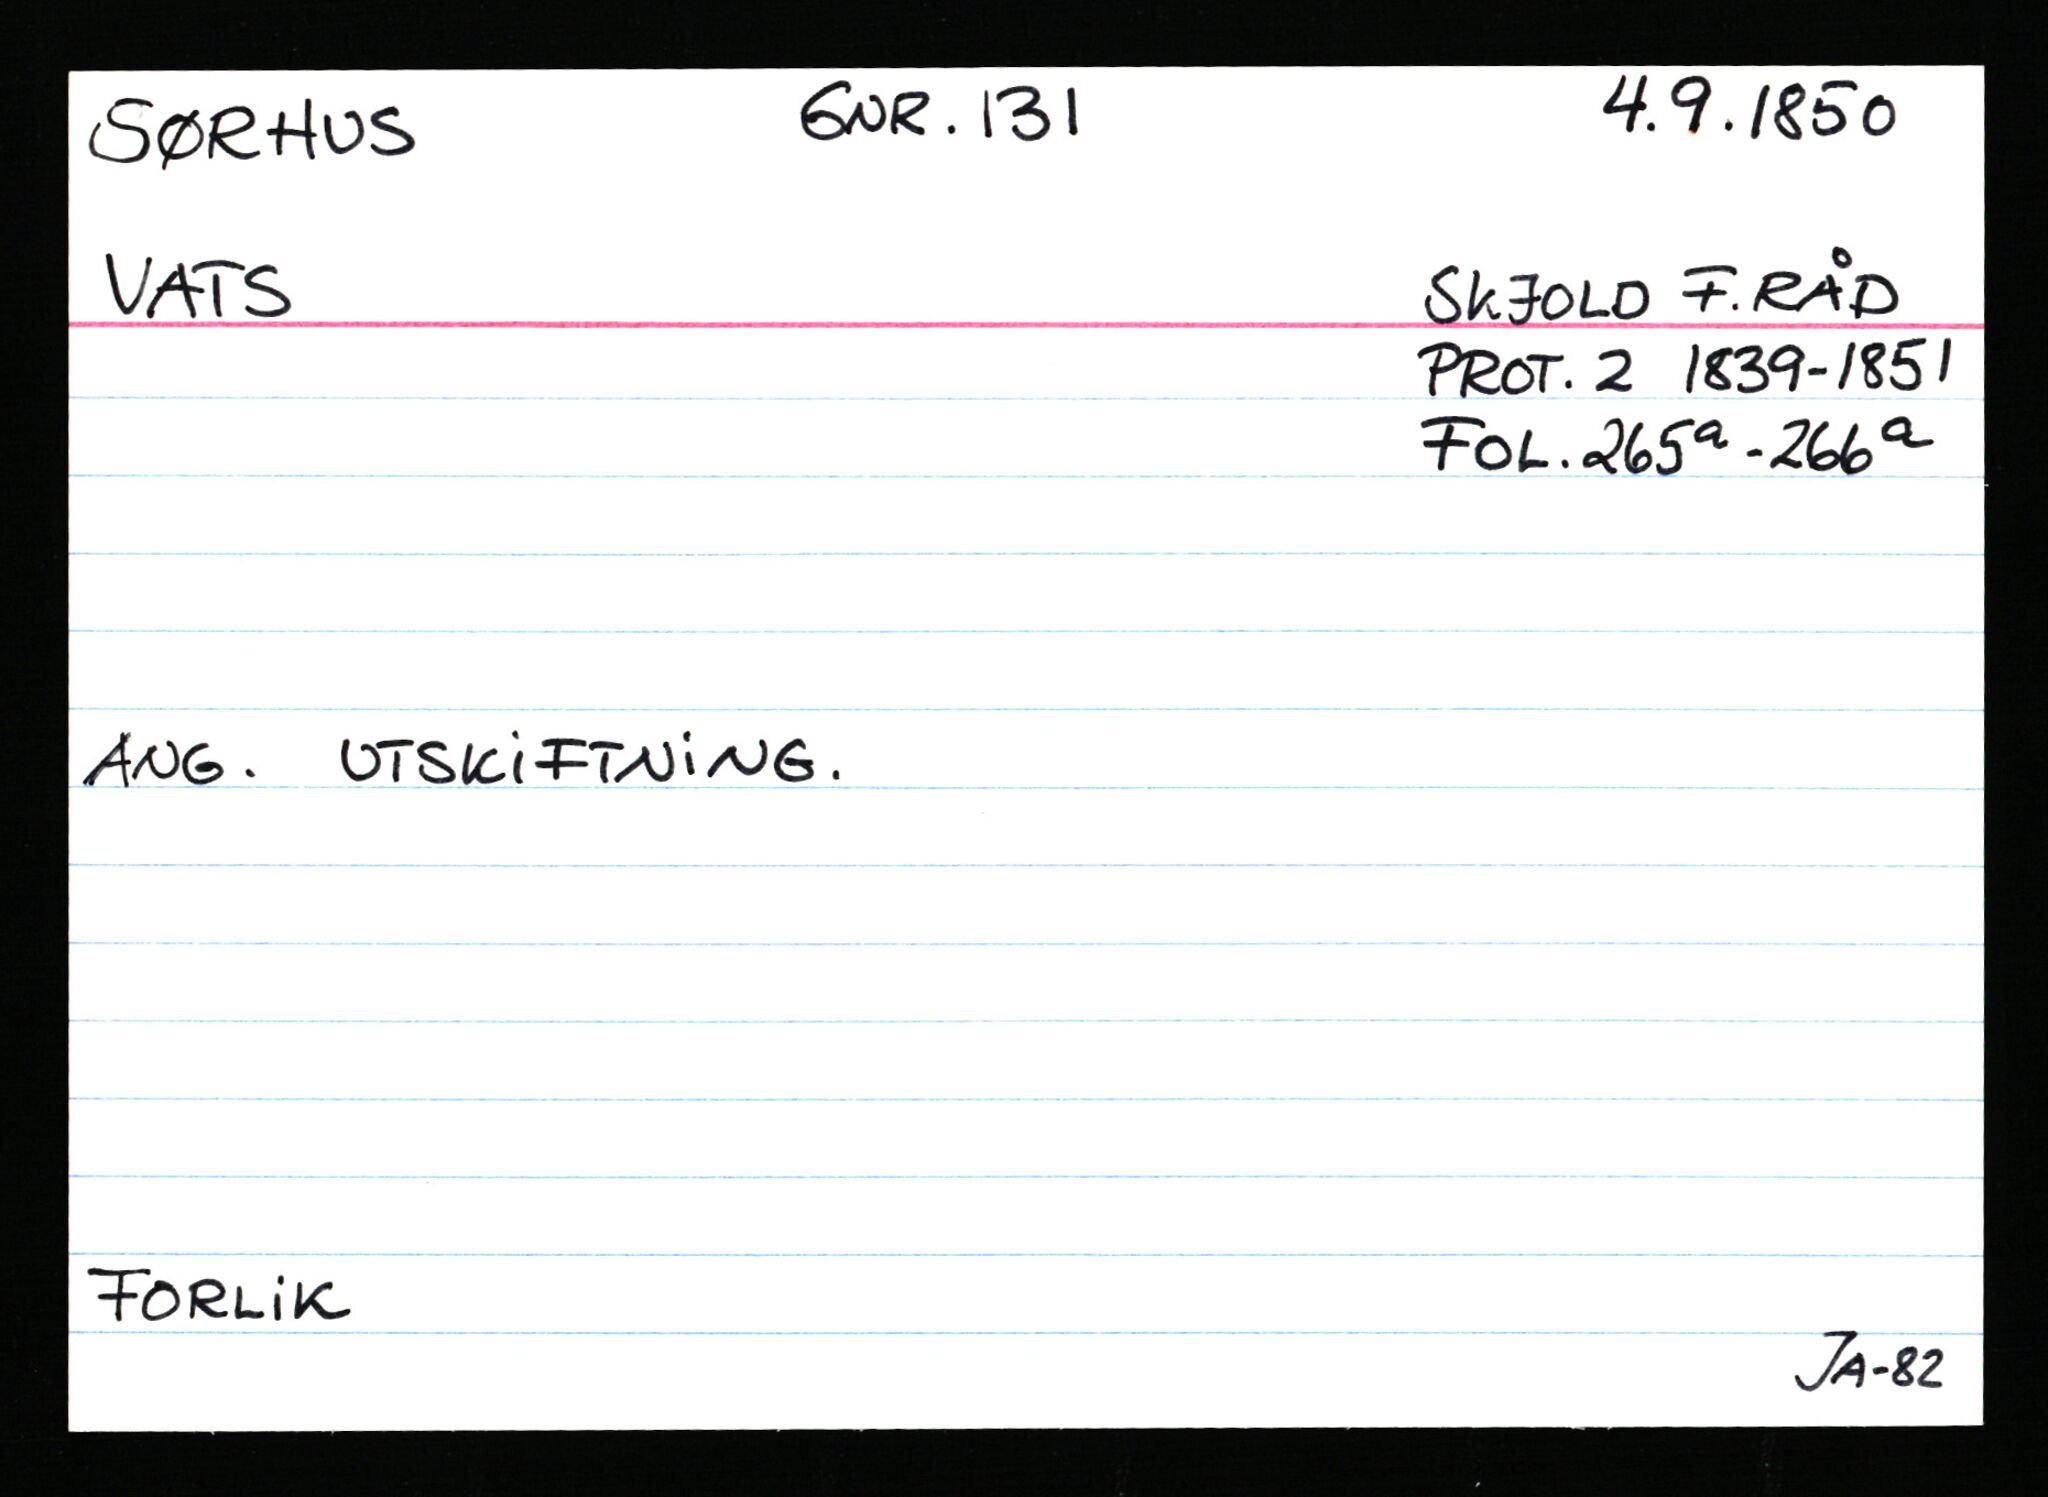 SØRHUS GNR. 131 4.9.1850
VATS SKJOLD F.RÅD
PROT. 2 1839-1851
FOL. 265a - 266a
ANG. UTSKIFTNING.
FORLIK
JA-82